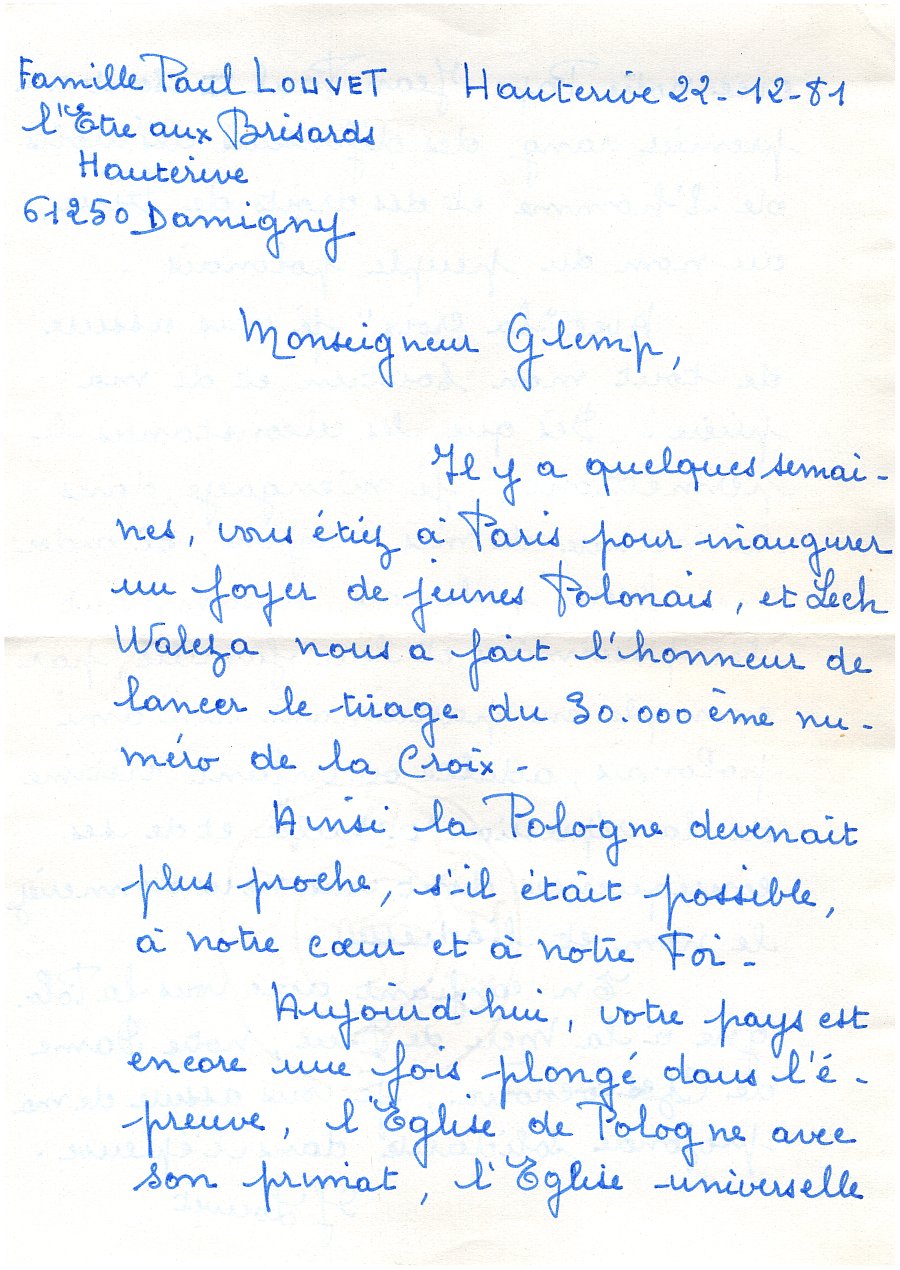 Famille Paul LOUVET Hauterive 22-12-81
l'Etre aux Brisards
Hauterive
61250 Damigny
Monseigneur Glemp,
Il y a quelques semai-
nes, vous étiez à Paris pour inaugurer
un foyer de jeunes Polonais, et Lech
Waleza nous a fait l'honneur de
lancer le tirage du 30.000 ème nu-
méro de la Croix-
Ainsi la Pologne devenait
plus proche, s'il était possible,
à notre cœur et à notre Foi-
Aujourd'hui, votre pays est
encore une fois plongé dans l'é-
preuve, l'Eglise de Pologne avec
son primat, l'Eglise universelle